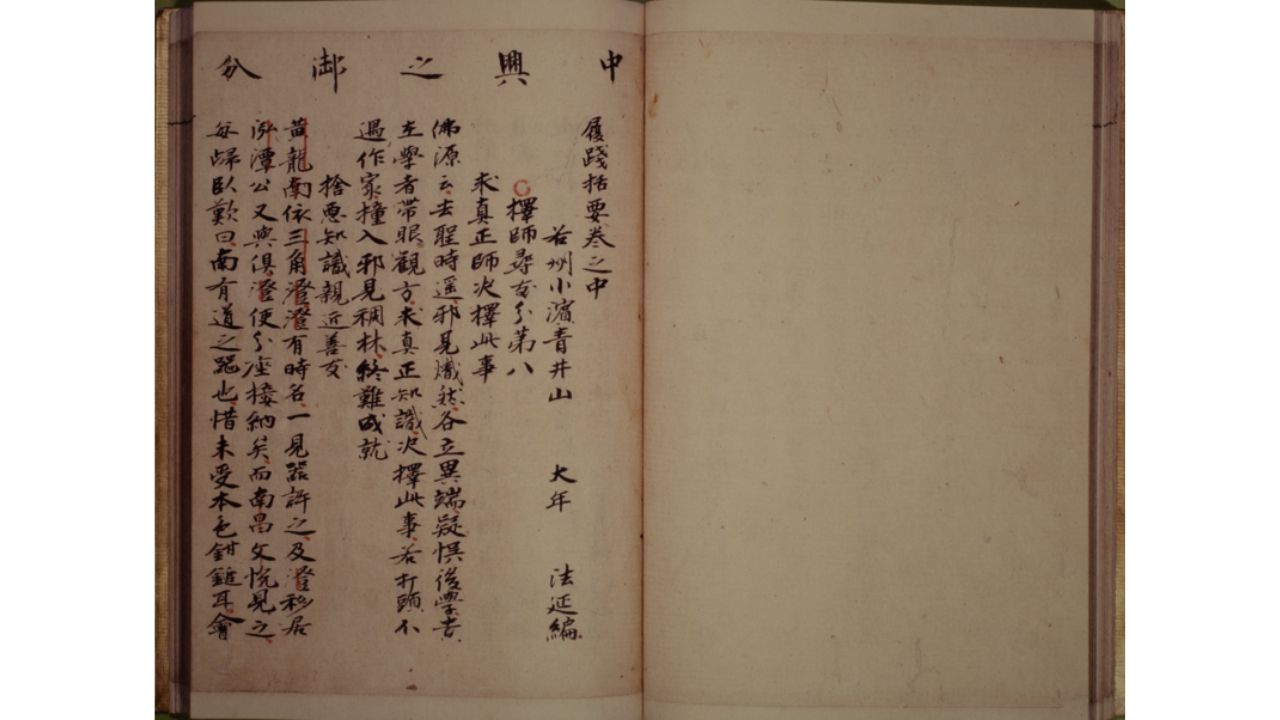 中興之御分
履踐括要卷之中
若州小濵青井山 大年 法延編
擇師尋友分第八
求真正師決擇此事
佛源云去聖時遥邪見熾然各立異端疑悞後學者
立學者帶眼觀方求真正知識決擇此事若打頭不
遇作家撞入邪見稠林終難成就
捨惡知識親近善友
黄龍南依三角澄澄有時名一見器許之及澄移居
泐潭公又與俱澄便分座接納矣而南昌文悅見之
每歸臥歎曰南有道之器也惜未受本色鉗鎚耳會